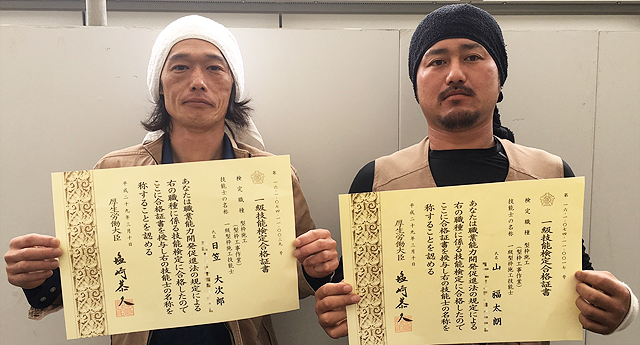 一級技能検定合格証書
検定職種 型枠施工
(型枠工事作業)
技能士の名称 一級型枠施工技能士
氏名 日笠 大次郎
あなたは職業能力開発促進法の規定による
右の職種に係る技能検定に合格したので
ここに合格証書を授与し右の技能士の名称を
称することを認める
厚生労働大臣 塩崎恭久
一級技能検定合格証書
検定職種 型枠施工
(型枠工事作業)
技能士の名称 一級型枠施工技能士
氏名 山 福太朗
あなたは職業能力開発促進法の規定による
右の職種に係る技能検定に合格したので
ここに合格証書を授与し右の技能士の名称を
称することを認める
厚生労働大臣 塩崎恭久